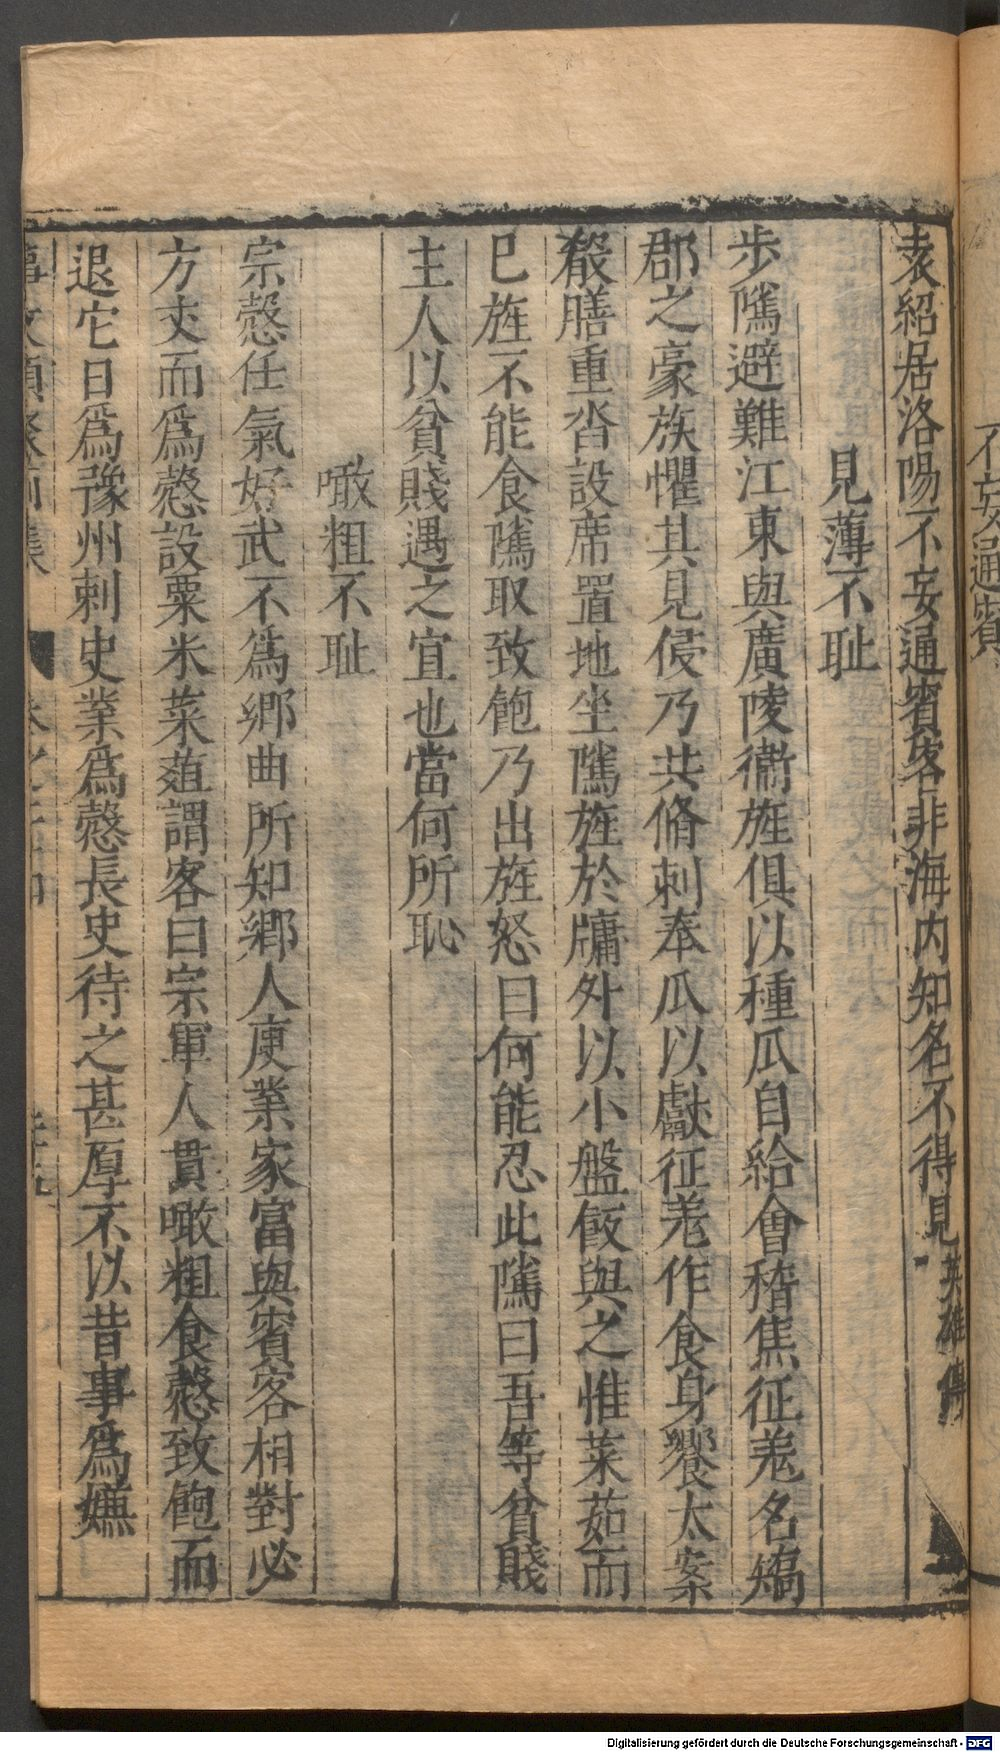 不妄通賓
袁紹居洛陽不妄通賓客非海内知名不得見英雄傳
見薄不耻
步隲避難江東與廣陵衞旌俱以種瓜自給會稽焦征羌名矯
郡之豪族懼其見侵乃共脩刺奉瓜以獻征羌作食身饗太案
殽膳重沓設席置地坐隲旌於牖外以小盤飯與之惟菜茹而
巳旌不能食隲取致飽乃出旌怒曰何能忍此隲曰吾等貧賤
主人以貧賤遇之宜也當何所恥
噉粗不耻
宗慤任氣好武不爲鄉曲所知鄉人庾業家富與賓客相對必
方丈而爲慤設粟米菜葅謂客曰宗軍人貫噉粗食慤致飽而
退它日爲豫州刺史業爲慤長史待之甚厚不以昔事爲嫌
事文類聚前集
Digitalisierung gefördert durch die Deutsche Forschungsgemeinschaft - DFG